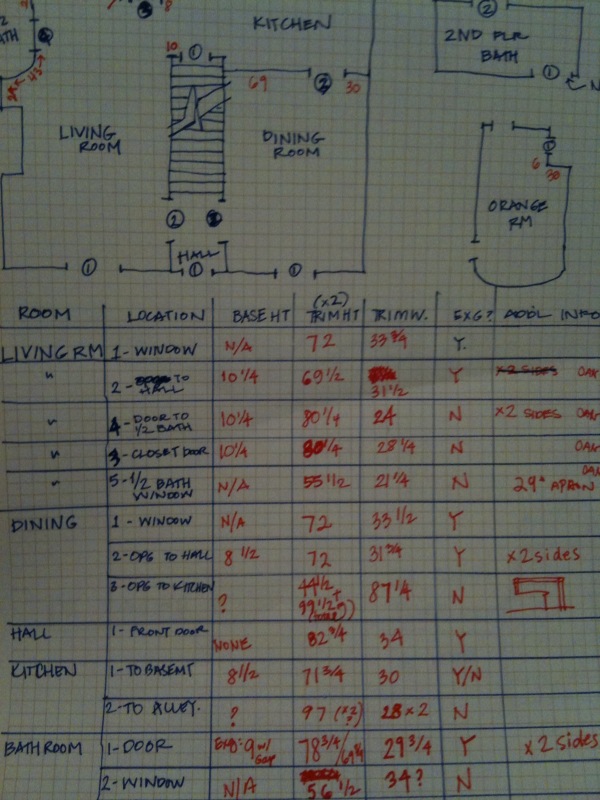 KITCHEN
2ND FLR
BATH
LIVING
ROOM
DINING
ROOM
HALL
ORANGE
RM
10
69
30
43
6
30
ROOM LOCATION BASE HT (x2) TRIM HT TRIM W. EXG? ADD'L INFO
LIVING RM 1- WINDOW N/A 72 33 3/4 Y.
" 2- TO HALL 10 1/4 69 1/2 31 1/2 Y x2 SIDES OAK
" 4- DOOR TO 1/2 BATH 10 1/4 80 1/4 24 N x2 SIDES OAK
" 3- CLOSET DOOR 10 1/4 80 1/4 28 1/4 N OAK
" 5- 1/2 BATH WINDOW N/A 55 1/2 21 1/4 N 29" APRON OAK
DINING 1- WINDOW N/A 72 33 1/2 Y
2- OPG TO HALL 8 1/2 72 31 3/4 Y x2 sides
3- OPG TO KITCHEN ? 44 1/2 + 99 1/2 87 1/4 N
HALL 1- FRONT DOOR NONE 82 3/4 34 Y
KITCHEN 1- TO BASEMT 8 1/2 71 3/4 30 Y/N
2- TO ALLEY. ? 97 (x2?) 28 x 2 N
BATHROOM 1- DOOR 9 w/ Gap 78 3/4 / 69 3/4 29 3/4 Y x2 Sides
2- WINDOW N/A 56 1/2 34? N